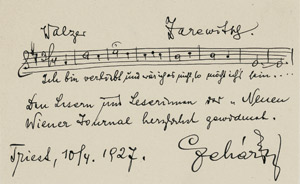 Walzer Zarewitsch
Ich bin verliebt und wär ich es nicht, so möcht ich sein....
Den Lesern und Leserinnen des „Neuen
Wiener Journal herzlichst gewidmet.
Triest, 10/4. 1927. Lehár